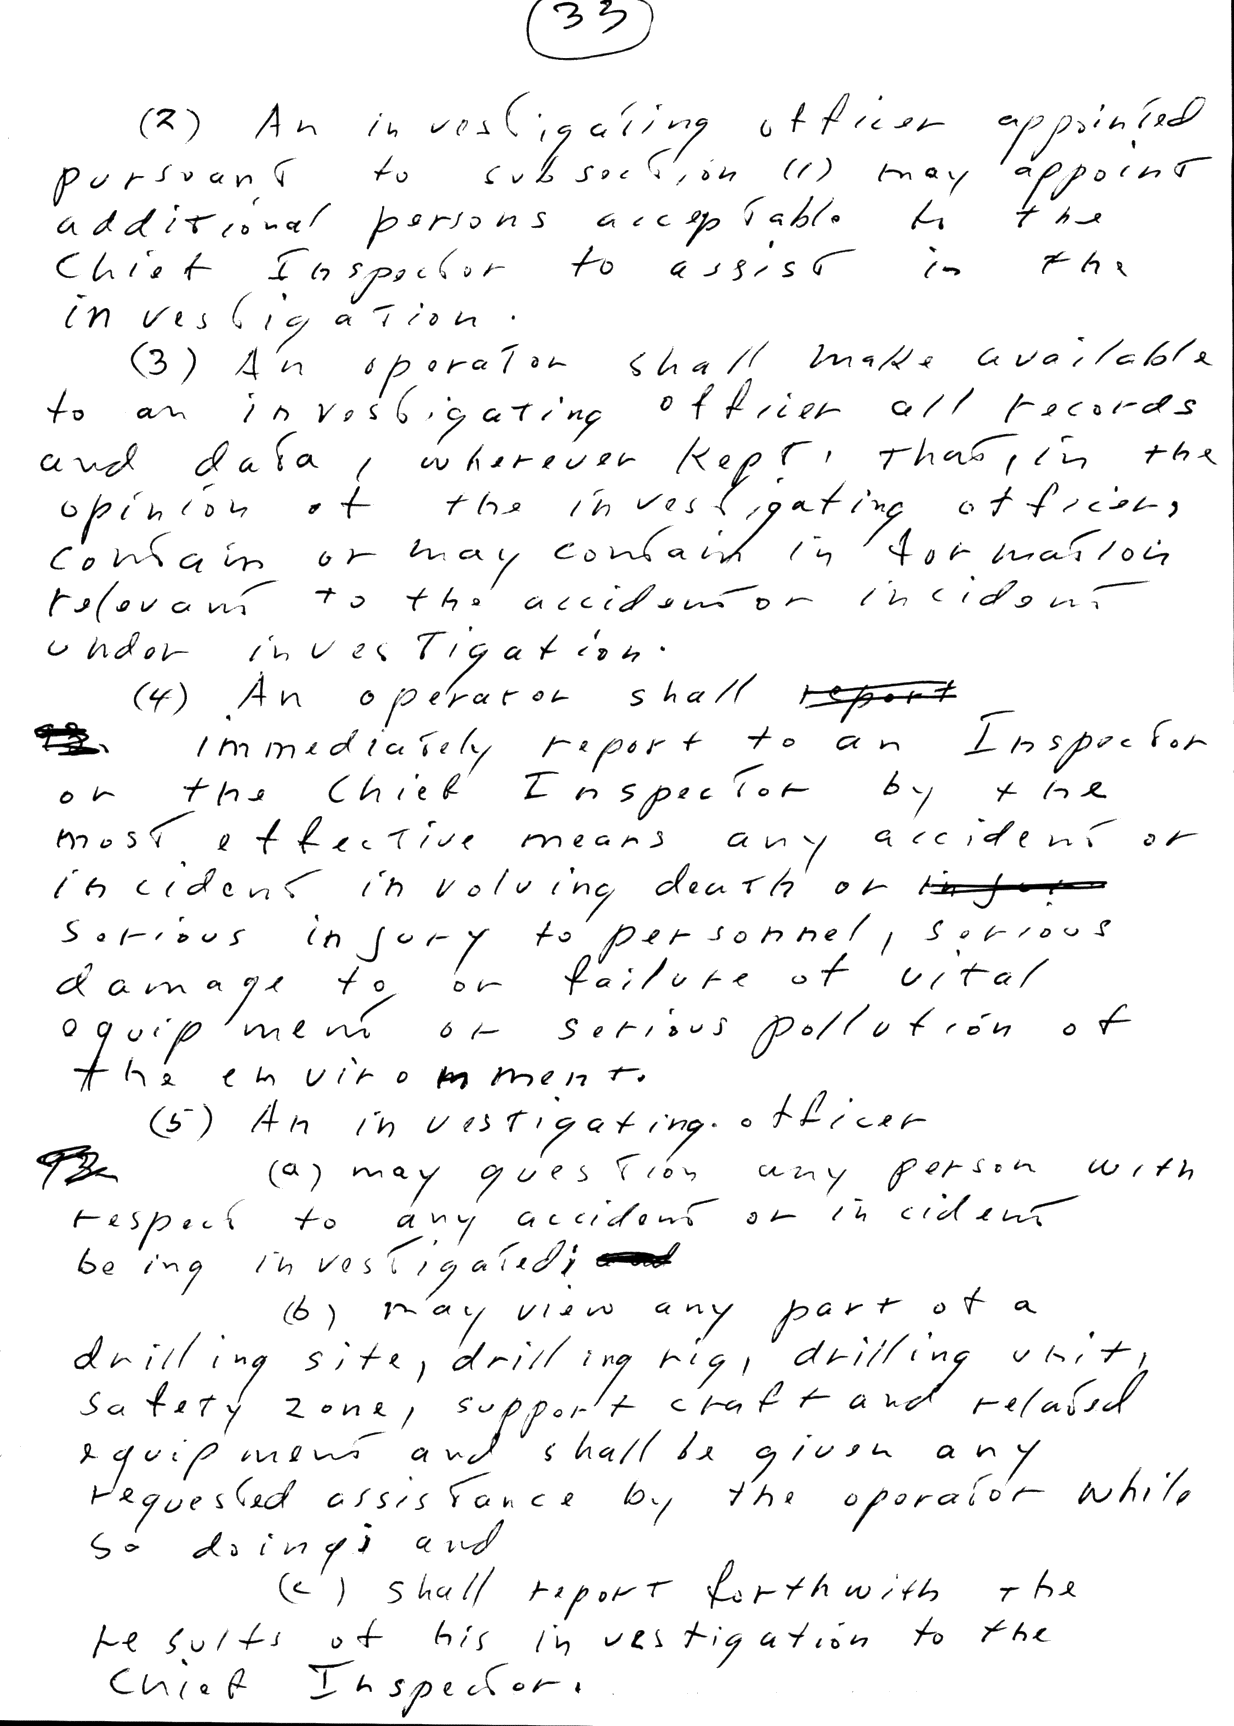 33
(2) An investigating officer appointed
pursuant to subsection (1) may appoint
additional persons acceptable to the
Chief Inspector to assist in the
investigation.
(3) An operator shall make available
to an investigating officer all records
and data, wherever kept, that, in the
opinion of the investigating officer,
contain or may contain information
relevant to the accident or incident
under investigation.
(4) An operator shall report
immediately report to an Inspector
or the Chief Inspector by the
most effective means any accident or
incident involving death or injur
serious injury to personnel, serious
damage to or failure of vital
equipment or serious pollution of
the environment.
(5) An investigating officer
(a) may question any person with
respect to any accident or incident
being investigated; and
(b) may view any part of a
drilling site, drilling rig, drilling unit,
safety zone, support craft and related
equipment and shall be given any
requested assistance by the operator while
so doing; and
(c) shall report forthwith the
results of his investigation to the
Chief Inspector.